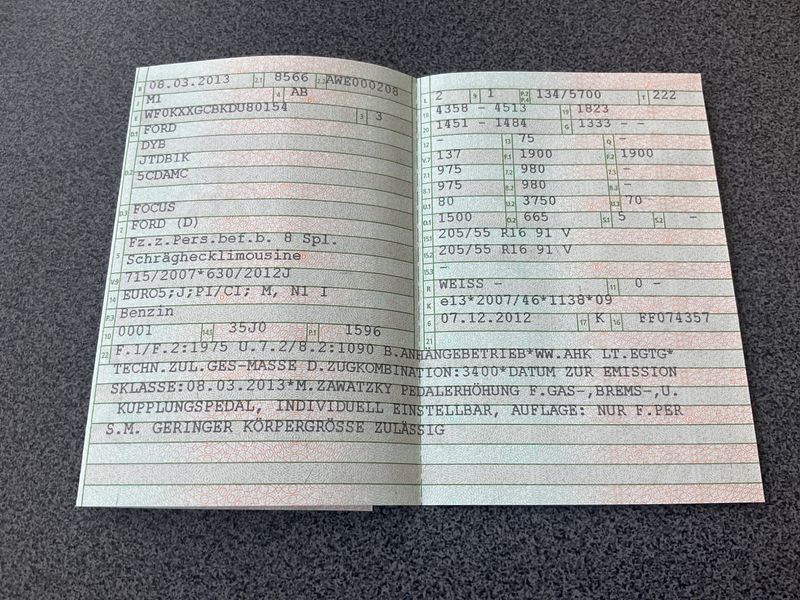 B 08.03.2013 2.1 8566 2.2 AWE000208
J M1 4 AB
E WF0KXXGCBKDU80154 3 3
D.1 FORD
DYB
D.2 JTDB1K
5CDAMC
D.3 FOCUS
2 FORD (D)
5 Fz.z.Pers.bef.b. 8 Spl.
Schräghecklimousine
V.9 715/2007*630/2012J
14 EURO5;J;PI/CI; M, N1 I
P.3 Benzin
10 0001 14.1 35J0 P.1 1596
L 2 9 1 P.2 P.4 134/5700 T 222
18 4358 - 4513 19 1823
20 1451 - 1484 G 1333 --
12 - 13 75 Q -
V.7 137 F.1 1900 F.2 1900
7.1 975 7.2 980 7.3 -
8.1 975 8.2 980 8.3 -
U.1 80 U.2 3750 U.3 70
O.1 1500 O.2 665 S.1 5 S.2 -
15.1 205/55 R16 91 V
15.2 205/55 R16 91 V
15.3 -
R WEISS - 11 0 -
K e13*2007/46*1138*09
6 07.12.2012 17 K 16 FF074357
21
22 F.1/F.2:1975 U.7.2/8.2:1090 B.ANHÄNGEBETRIEB*WW.AHK LT.EGTG*
TECHN.ZUL.GES-MASSE D.ZUGKOMBINATION:3400*DATUM ZUR EMISSION
SKLASSE:08.03.2013*M.ZAWATZKY PEDALERHÖHUNG F.GAS-,BREMS-,U.
KUPPLUNGSPEDAL, INDIVIDUELL EINSTELLBAR, AUFLAGE: NUR F.PER
S.M. GERINGER KÖRPERGRÖSSE ZULÄSSIG